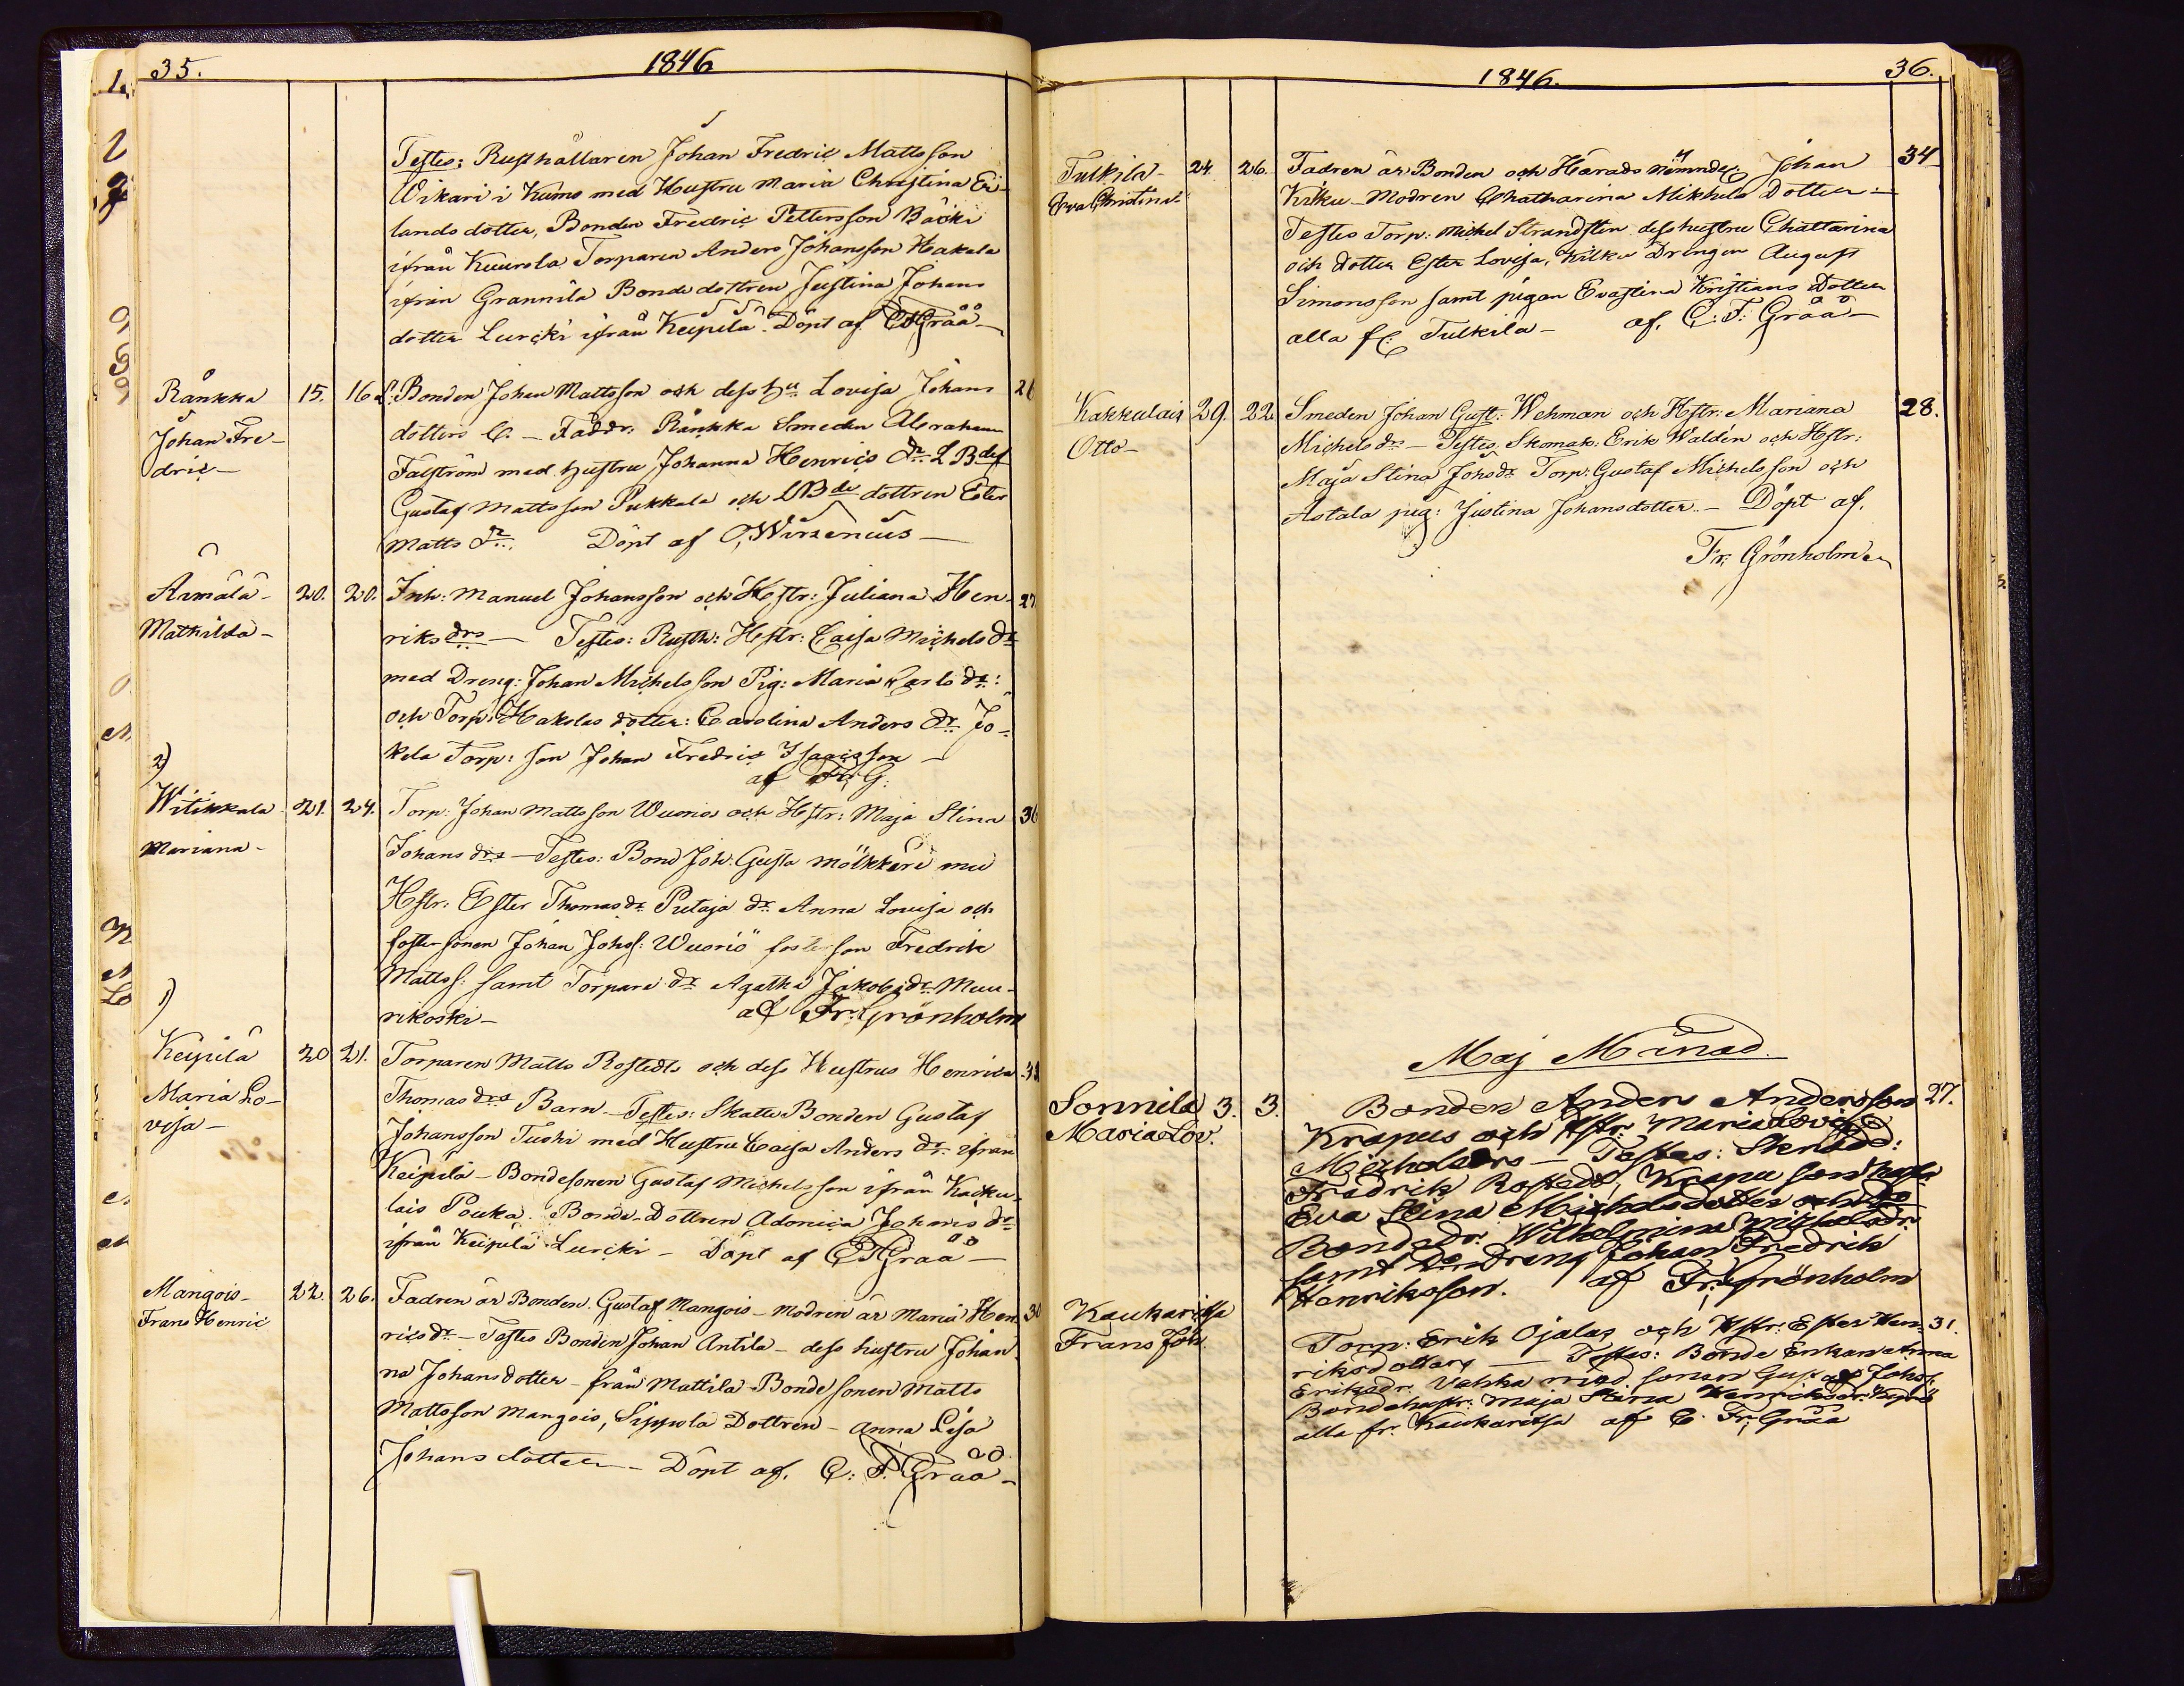 35.
1846
Testes: Rusthållaren Johan Fredric Mattsson
Wikari i Kumo med Hustru Maria Christina Er-
lands dotter, Bonden Fredric Pettersson Bäcki
ifrån Kuurola Torparen Anders Johansson Hakala
ifrån Grannila Bonde dottren Justina Johans
dotter Lurcki ifrån Keipilä. Döpt af CFGråå
Ränkkä
Johan Fre-
dric
15.
16
Bonden Johan Mattsson och dess hu Lovisa Johans
26
dotters B. Faddr: Ränkkä Smeden Abraham
Falström med hustru Johanna Henrics dr
Gustaf Mattsson Pukkala och dottren Ester
Matts dr. Döpt af O. Wirzenius
Ärmälä
Mathilda
20.
20.
Inh: Manuel Johansson och Hstr: Juliana Hen-
27
riks drs Testes: Rusth: Hstr: Caisa Michels dr
med Dreng: Johan Michelsson Pig: Maria Carls dr:
och Torp: Hakolas dotter: Carolina Anders dr. Jo-
kela Torp: son Johan Fredric Isacsson
af Fr. G.
2)
Witikkala
Mariana
21.
24.
Torp. Johan Mattsson Wuorios och Hstr: Maja Stina
36
Johans drs Testes: Bond Joh. Gusta Mölkkäri med
Hstr: Ester Thomas dr Putaja dr. Anna Lovisa och
fostersonen Johan Johss: Wuorio fosterson Fredrik
Mattss: samt Torpare dr Agatha Jakobs dr. Muu-
rikoski af Fr: Grönholm
1)
Keipilä
Maria Lo-
visa
20
21.
Torparen Matts Rostedts och dess Hustrus Henrica
31
Thomas drs Barn. Testes: Skatte Bonden Gustaf
Johansson Tuski med Hustru Caisa Anders dr. ifrån
Keipilä Bondesonen Gustaf Michelsson ifrån Kacku-
lais Pouka. Bonde-Dottren Adonica Johans dr
ifrån Keipilä Lurcki Döpt af CFGråå
Mangois
Frans Henric
22.
26.
Fadren är Bonden Gustaf Mangois modren är Maria Hen-
30
rics dr Testes Bonden Johan Antila dess hustru Johan-
na Johans dotter från Mattila Bondesonen Matts
Mattsson Mangois, Sippola Dottren Anna Lisa
Johans dotter Döpt af. C: F. Gråå
1846.
36.
Tulkila
Eva Christina
24.
26.
Fadren är Bonden och Härads nämndem Johan
34
Kilku Modren Chatharina Mikhels dotter
Testes Torp: Michel Strandsten dess hustru Chattarina
och dotter Ester Lovisa, Kilku Drengen August
Simonsson samt pigan Evastina Kristians Dotter
alla fr: Tulkila af. C: F: Gråå
Kakkulais
Otto
29.
22.
Smeden Johan Gust: Wehman och Hstr: Mariana
28.
Michels dr Testes, Skomak: Erik Waldén och Hstr:
Maja Stina Johs dr Torp: Gustaf Michelsson och
Astala pig: Justina Johansdotter. Döpt af.
Fr: Grönholm
Maj Månad.
Sonnila
Maria Lov.
3.
3.
Bonden Anders Andersson
27.
Krapus och Hstr: Maria Lovisa
Michelsdrs Testes: Skrädd:
Fredrik Rostedt, Krapu son
Eva Stina Michelsdotter och
Bondedr: Wilhelmina Michelsdr:
samt Dreng Johan Fredrik
Henriksson. af Fr: Grönholm
Kaukaritsa
Frans Joh.
Torp: Erik Ojalas och Hstr: Ester Hen-
31.
riksdotters Testes: Bonde Enkan Anna
Eriksdr. Vahka med sonen Gustaf Johs:
Bondehustr: Maja Stina Henriksdr:
alla fr: Kaukaritsa af C. Fr: Gråå